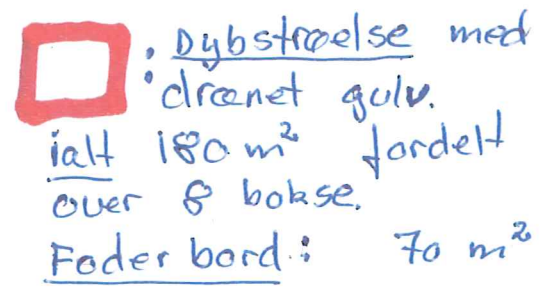 : Dybstrøelse med
drænet gulv.
ialt 180 m² fordelt
over 8 bokse.
Foder bord: 70 m²